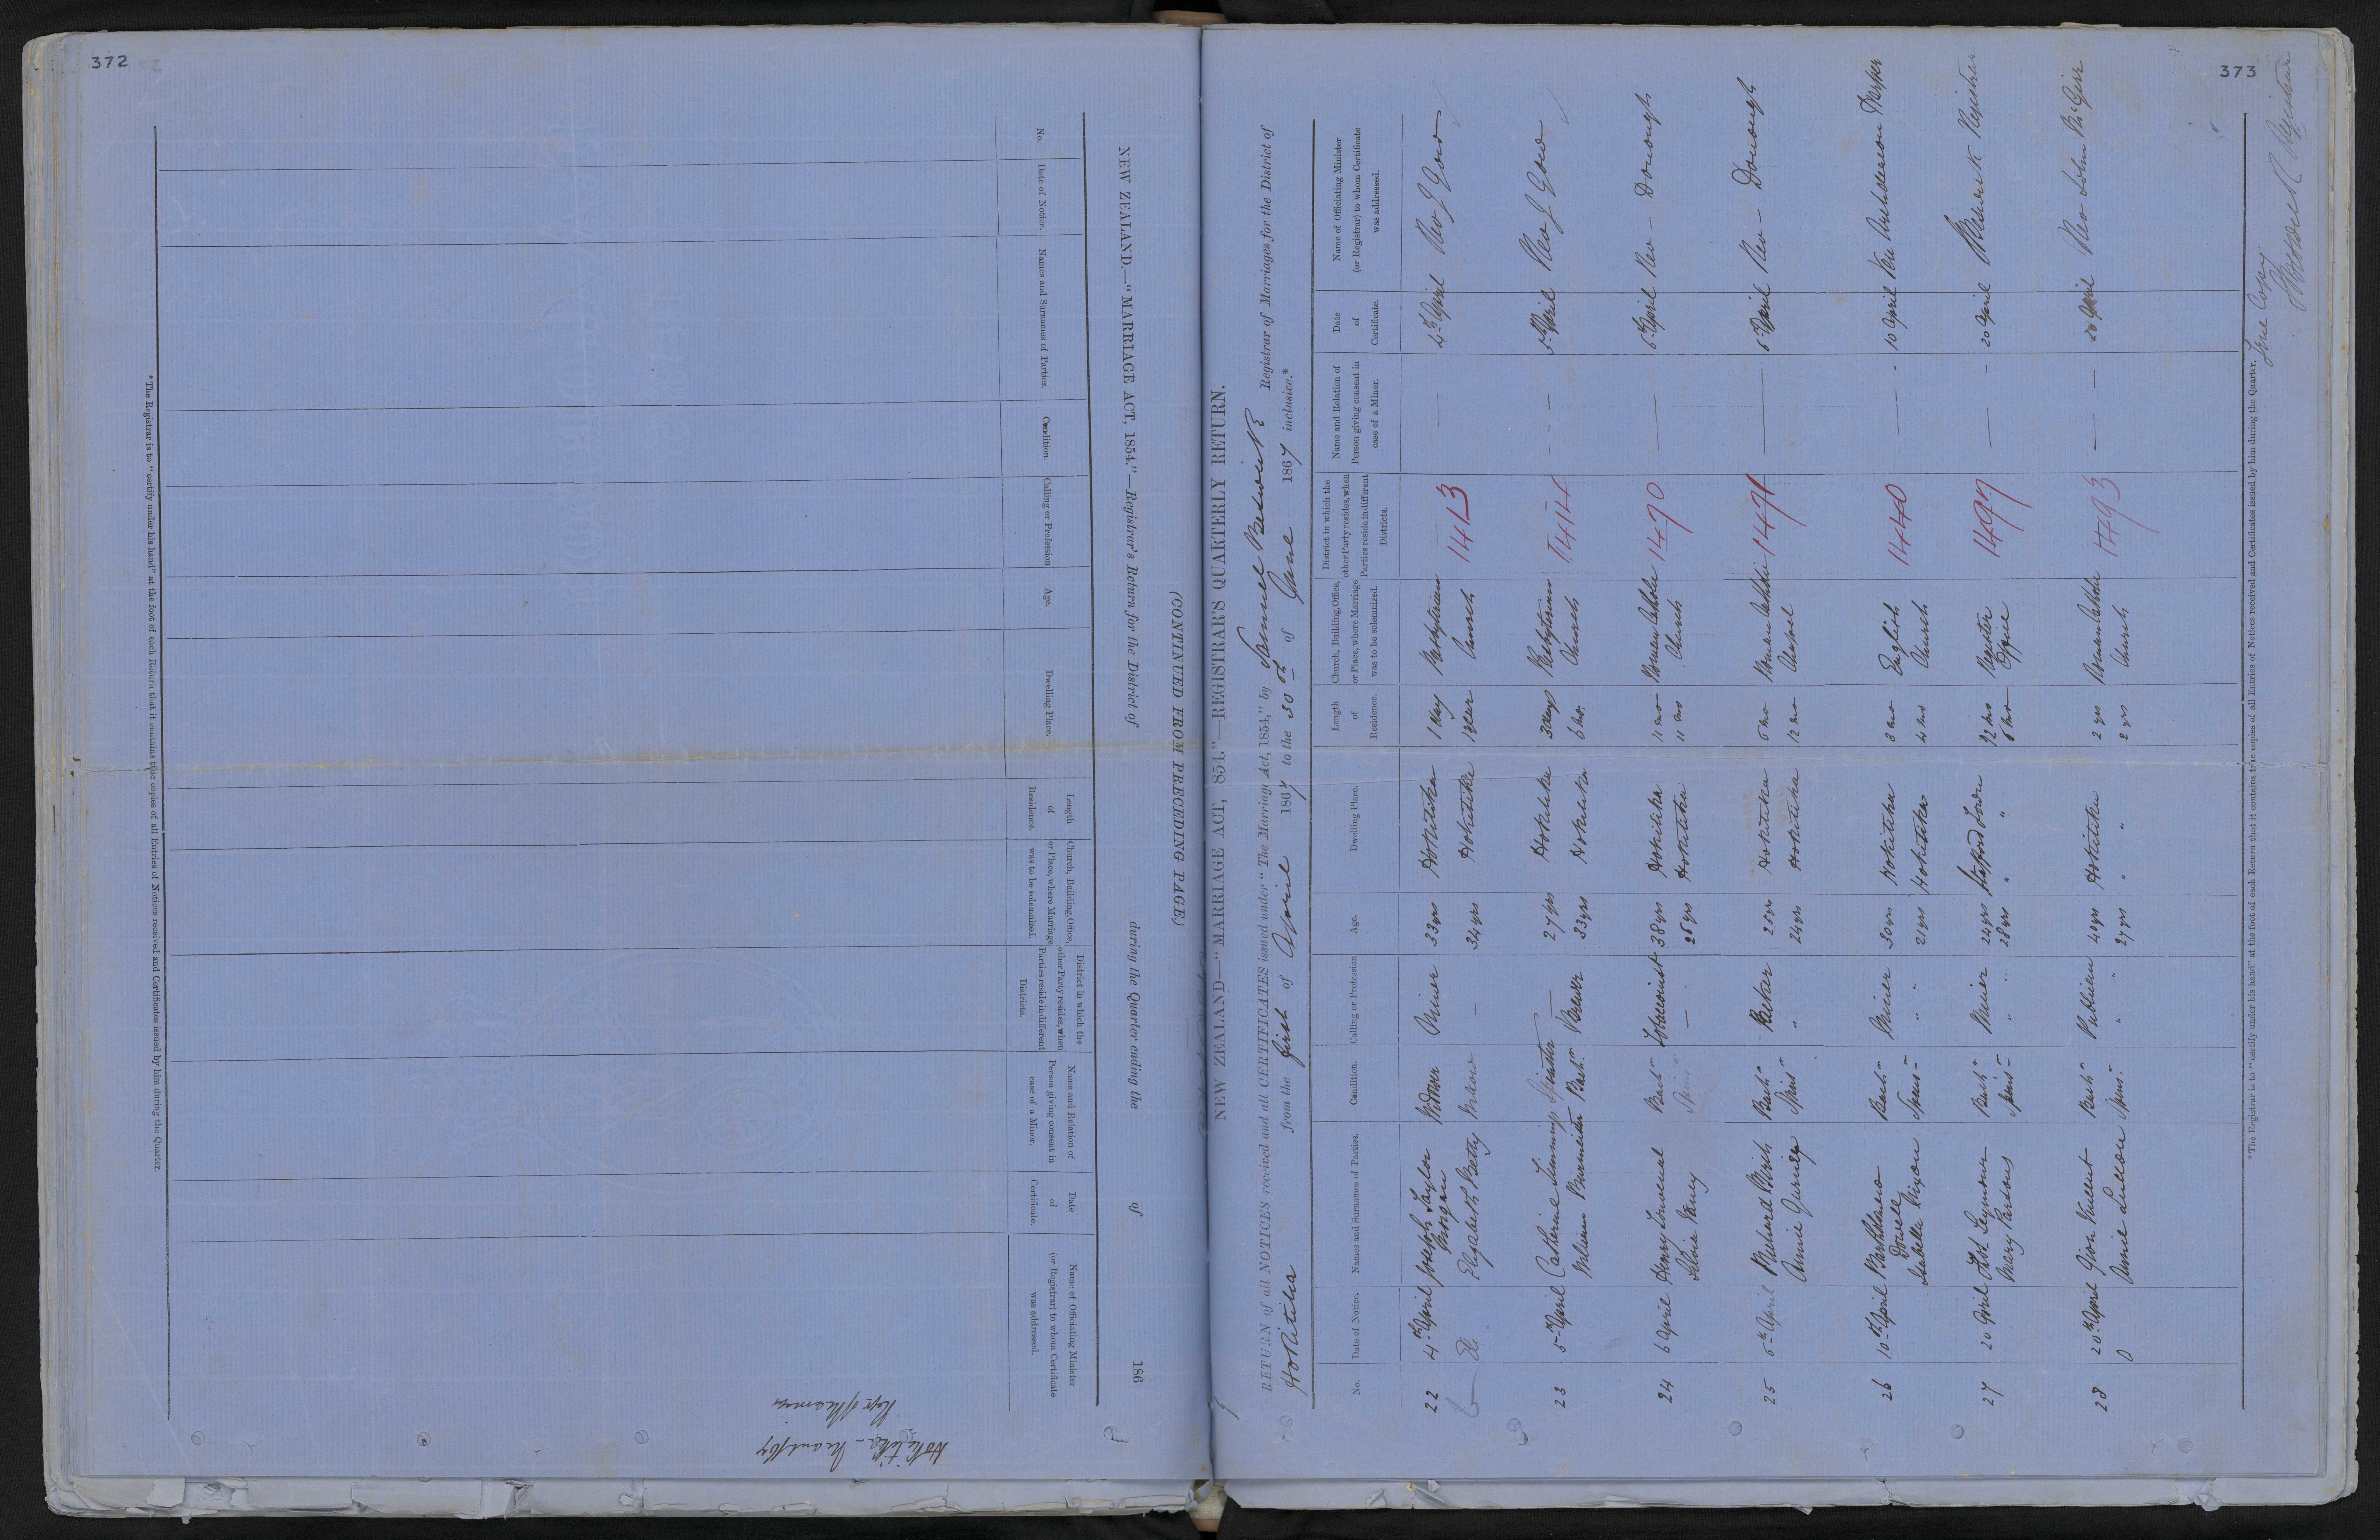 372
NEW ZEALAND.—"MARRIAGE ACT, 1854."—Registrar's Return for the District of during the Quarter ending the of 186
(CONTINUED FROM PRECEDING PAGE.)
No.
Date of Notice.
Names and Surnames of Parties.
Condition.
Calling or Profession
Age.
Dwelling Place.
Length of Residence.
Church, Building, Office, or Place, where Marriage was to be solemnized.
District in which the other Party resides, when Parties reside in different Districts.
Name and Relation of Person giving consent in case of a Minor.
Date of Certificate.
Name of Officiating Minister (or Registrar) to whom Certificate was addressed.
*The Registrar is to "certify under his hand" at the foot of each Return that it contains true copies of all Entries of Notices received and Certificates issued by him during the Quarter.
373
NEW ZEALAND—"MARRIAGE ACT, 1854."—REGISTRAR'S QUARTERLY RETURN.
RETURN of all NOTICES received and all CERTIFICATES issued under "The Marriage Act, 1854," by Samuel Beswick Registrar of Marriages for the District of
Hokitika from the first of April 1867 to the 30th of June 1867 inclusive.*
No.
Date of Notice.
Names and Surnames of Parties.
Condition.
Calling or Profession
Age.
Dwelling Place.
Length of Residence.
Church, Building, Office, or Place, where Marriage was to be solemnized.
District in which the other Party resides, when Parties reside in different Districts.
Name and Relation of Person giving consent in case of a Minor.
Date of Certificate.
Name of Officiating Minister (or Registrar) to whom Certificate was addressed.
22 4th April Joseph Taylor Widower Miner 33 yrs Hokitika 1 day Presbyterian 1413 — 4th April Rev J Gow
Morgan
Do. Elizabeth Betty Widow — 34 yrs Hokitika 1 year Church
23 5th April Catherine Spinster — 27 yrs Hokitika 3 days Presbyterian 1414 — 5th April Rev J Gow
William Burmeister Bachr Brewer 33 yrs Hokitika 6 mo. Church
24 6 April Henry Lowenthal Bachr Tobacconist 38 yrs Hokitika 11 mo Roman Catholic 1470 — 6th April Rev — Donough
Spinr — 26 yrs Hokitika 11 mo Church
25 6th April Richard Birch Bachr Baker 25 yrs Hokitika 6 mo Roman Catholic 1471 — 6th April Rev — Donough
Annie Spinr " 24 yrs Hokitika 12 mo Chapel
26 10th April Bachr Miner 30 yrs Hokitika 3 mo English 1440 — 10 April Ven Archdeacon Harper
Dowell
Isabella Nixon Spinr " 21 yrs Hokitika 4 mo Church
27 20 April Lot Seymour Bachr Miner 24 yrs Stafford Town 12 mo Register 1497 — 20 April Beswick Registrar
Mary Parsons Spinr " 28 yrs " " 6 mo Office
28 20th April Bachr Publican 40 yrs Hokitika 2 yrs Roman Catholic 1493 — 20 April Rev John McGirr
Annie Spinr " 27 yrs " " 2 yrs Church
*The Registrar is to "certify under his hand" at the foot of each Return that it contains true copies of all Entries of Notices received and Certificates issued by him during the Quarter.
True Copy
Beswick Registrar